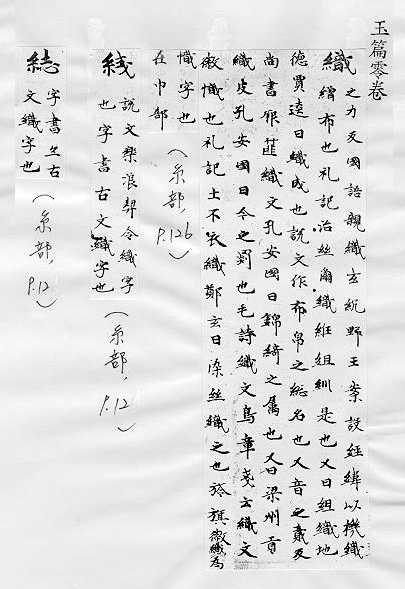 玉篇零卷
織 之力反國語親織玄紞野王案設經緯以機織
繒布也礼記治絲繭織紝組紃是也又曰組織地
德賈逵曰織成也說文作布帛之総名也又音之貳反
尚書厥篚織文孔安國曰錦綺之属也又曰梁州貢
織皮孔安國曰今之罽也毛詩織文鳥章戔云織文
徽幟也礼記士不衣織鄭玄曰染絲織之也旍旗徽織為
幟字也
在巾部
(糸部, P.126)
說文樂浪挈令織字
也字書古文織字也
(糸部, P.126)
綕 字書亦古
文織字也
(糸部, P.12)